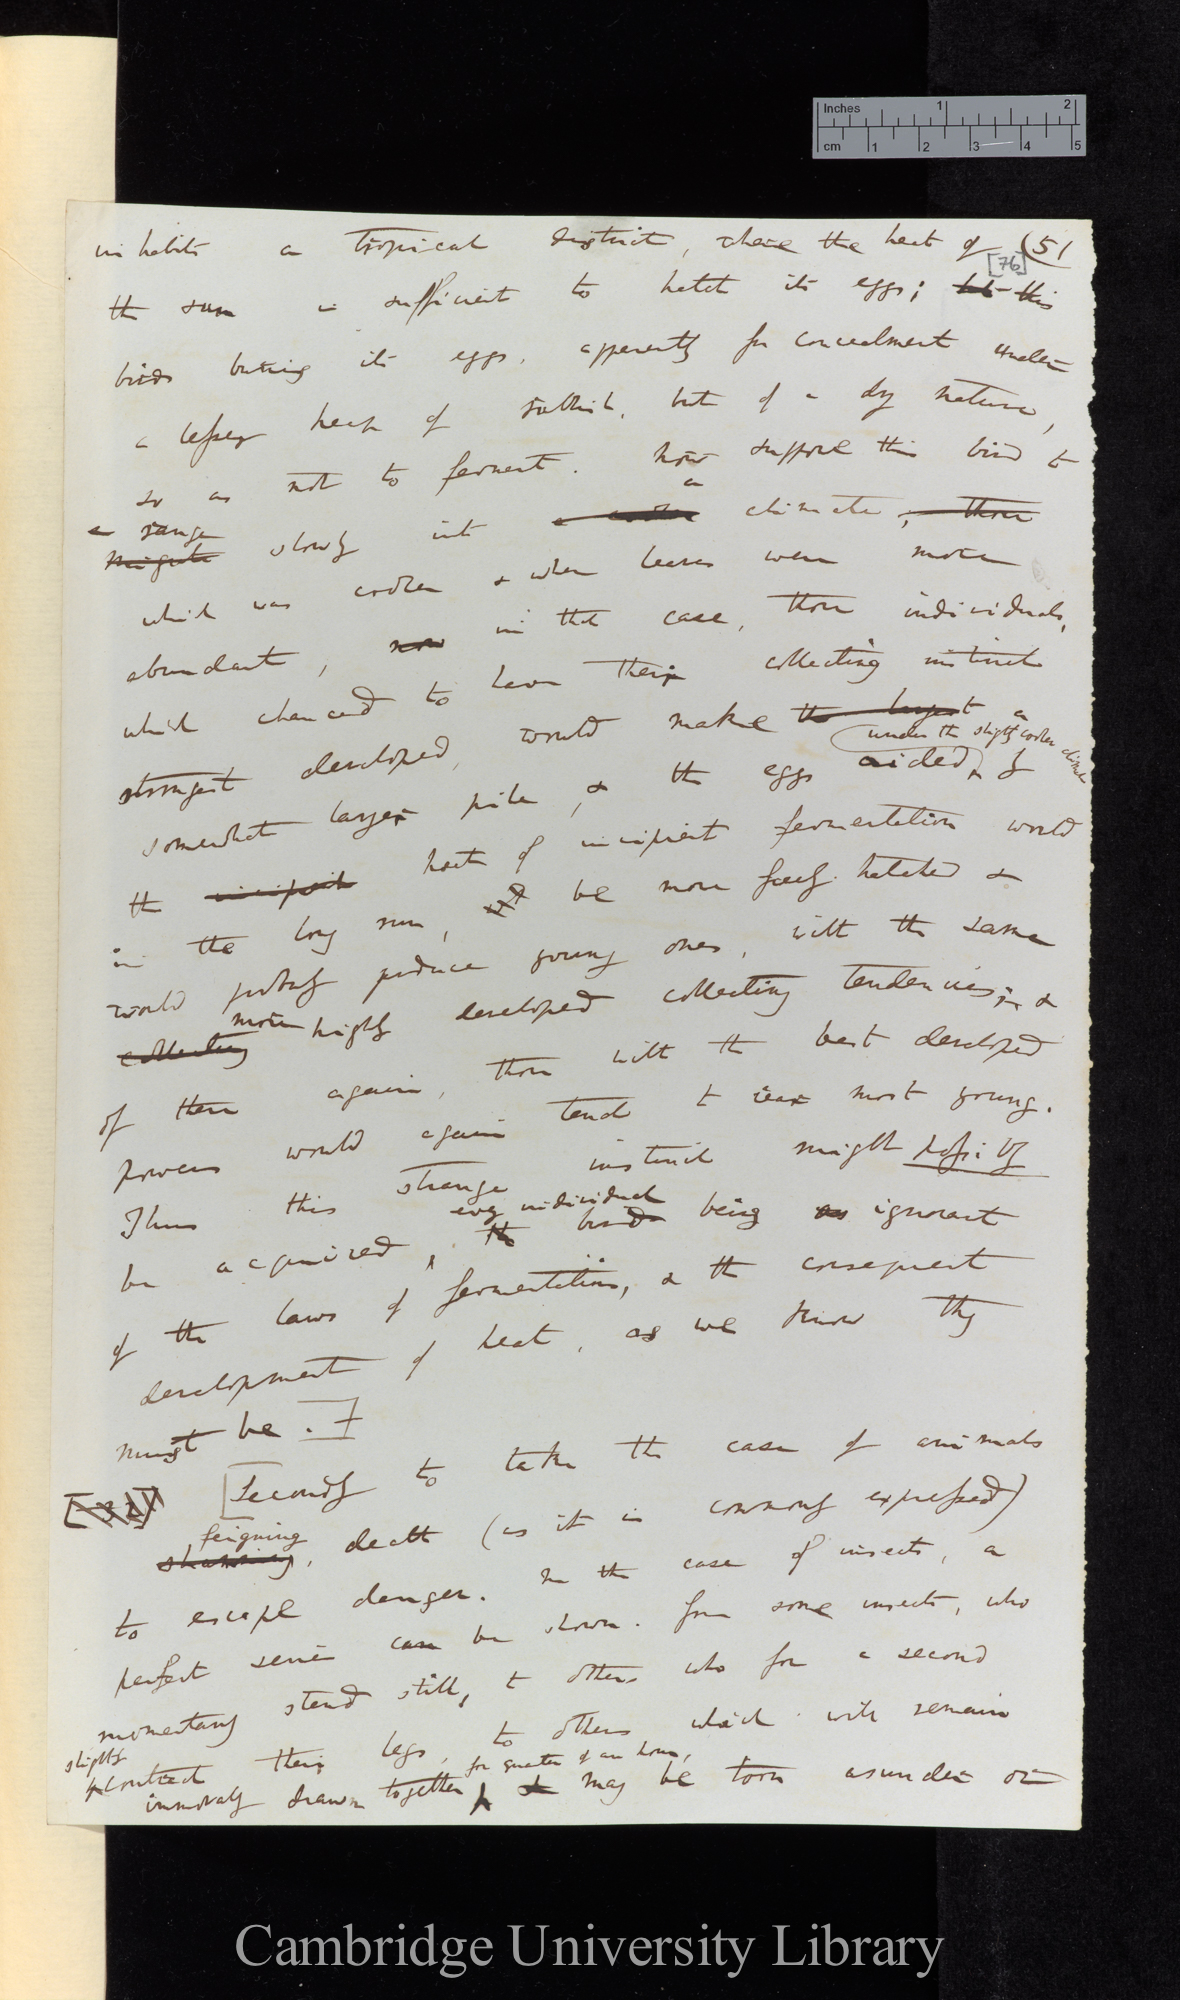 Inches 1 2
cm 1 2 3 4 5
inhabits a tropical district, where the heat of (51
[76]
the sun is sufficient to hatch its eggs; but this
birds burying its eggs, apparently for concealment under
a lesser heap of rubbish, but of a dry nature,
so as not to ferment. Now suppose this bird to
range a
migrate slowly into a cooler climate, those
which was cooler & when leaves were more
abundant, now in that case, those individuals,
which chanced to have their collecting instinct
strongest developed, would make the largest a
under the slightly cooler climate
somewhat larger pile, & the eggs aided, by
the incipient heat of incipient fermentation would
in the long run, be more freely hatched &
would probably produce young ones, with the same
more
collecting highly developed collecting tendencies; &
of these again, those with the best developed
powers would again tend to rear most young.
Thus this strange instinct might possibly
every individual
be acquired, the bird being as ignorant
of the laws of fermentation, & the consequent
development of heat, as we know they
must be.]
[Secondly to take the case of animals
feigning
shamming, death (as it is commonly expressed)
to escape danger. In the case of insects, a
perfect series can be shown. from some insects, who
momentarily stand still, to others who for a second
slightly
contract their legs, to others which will remain
for quarter of an hour,
immovably drawn together & may be torn asunder or
Cambridge University Library